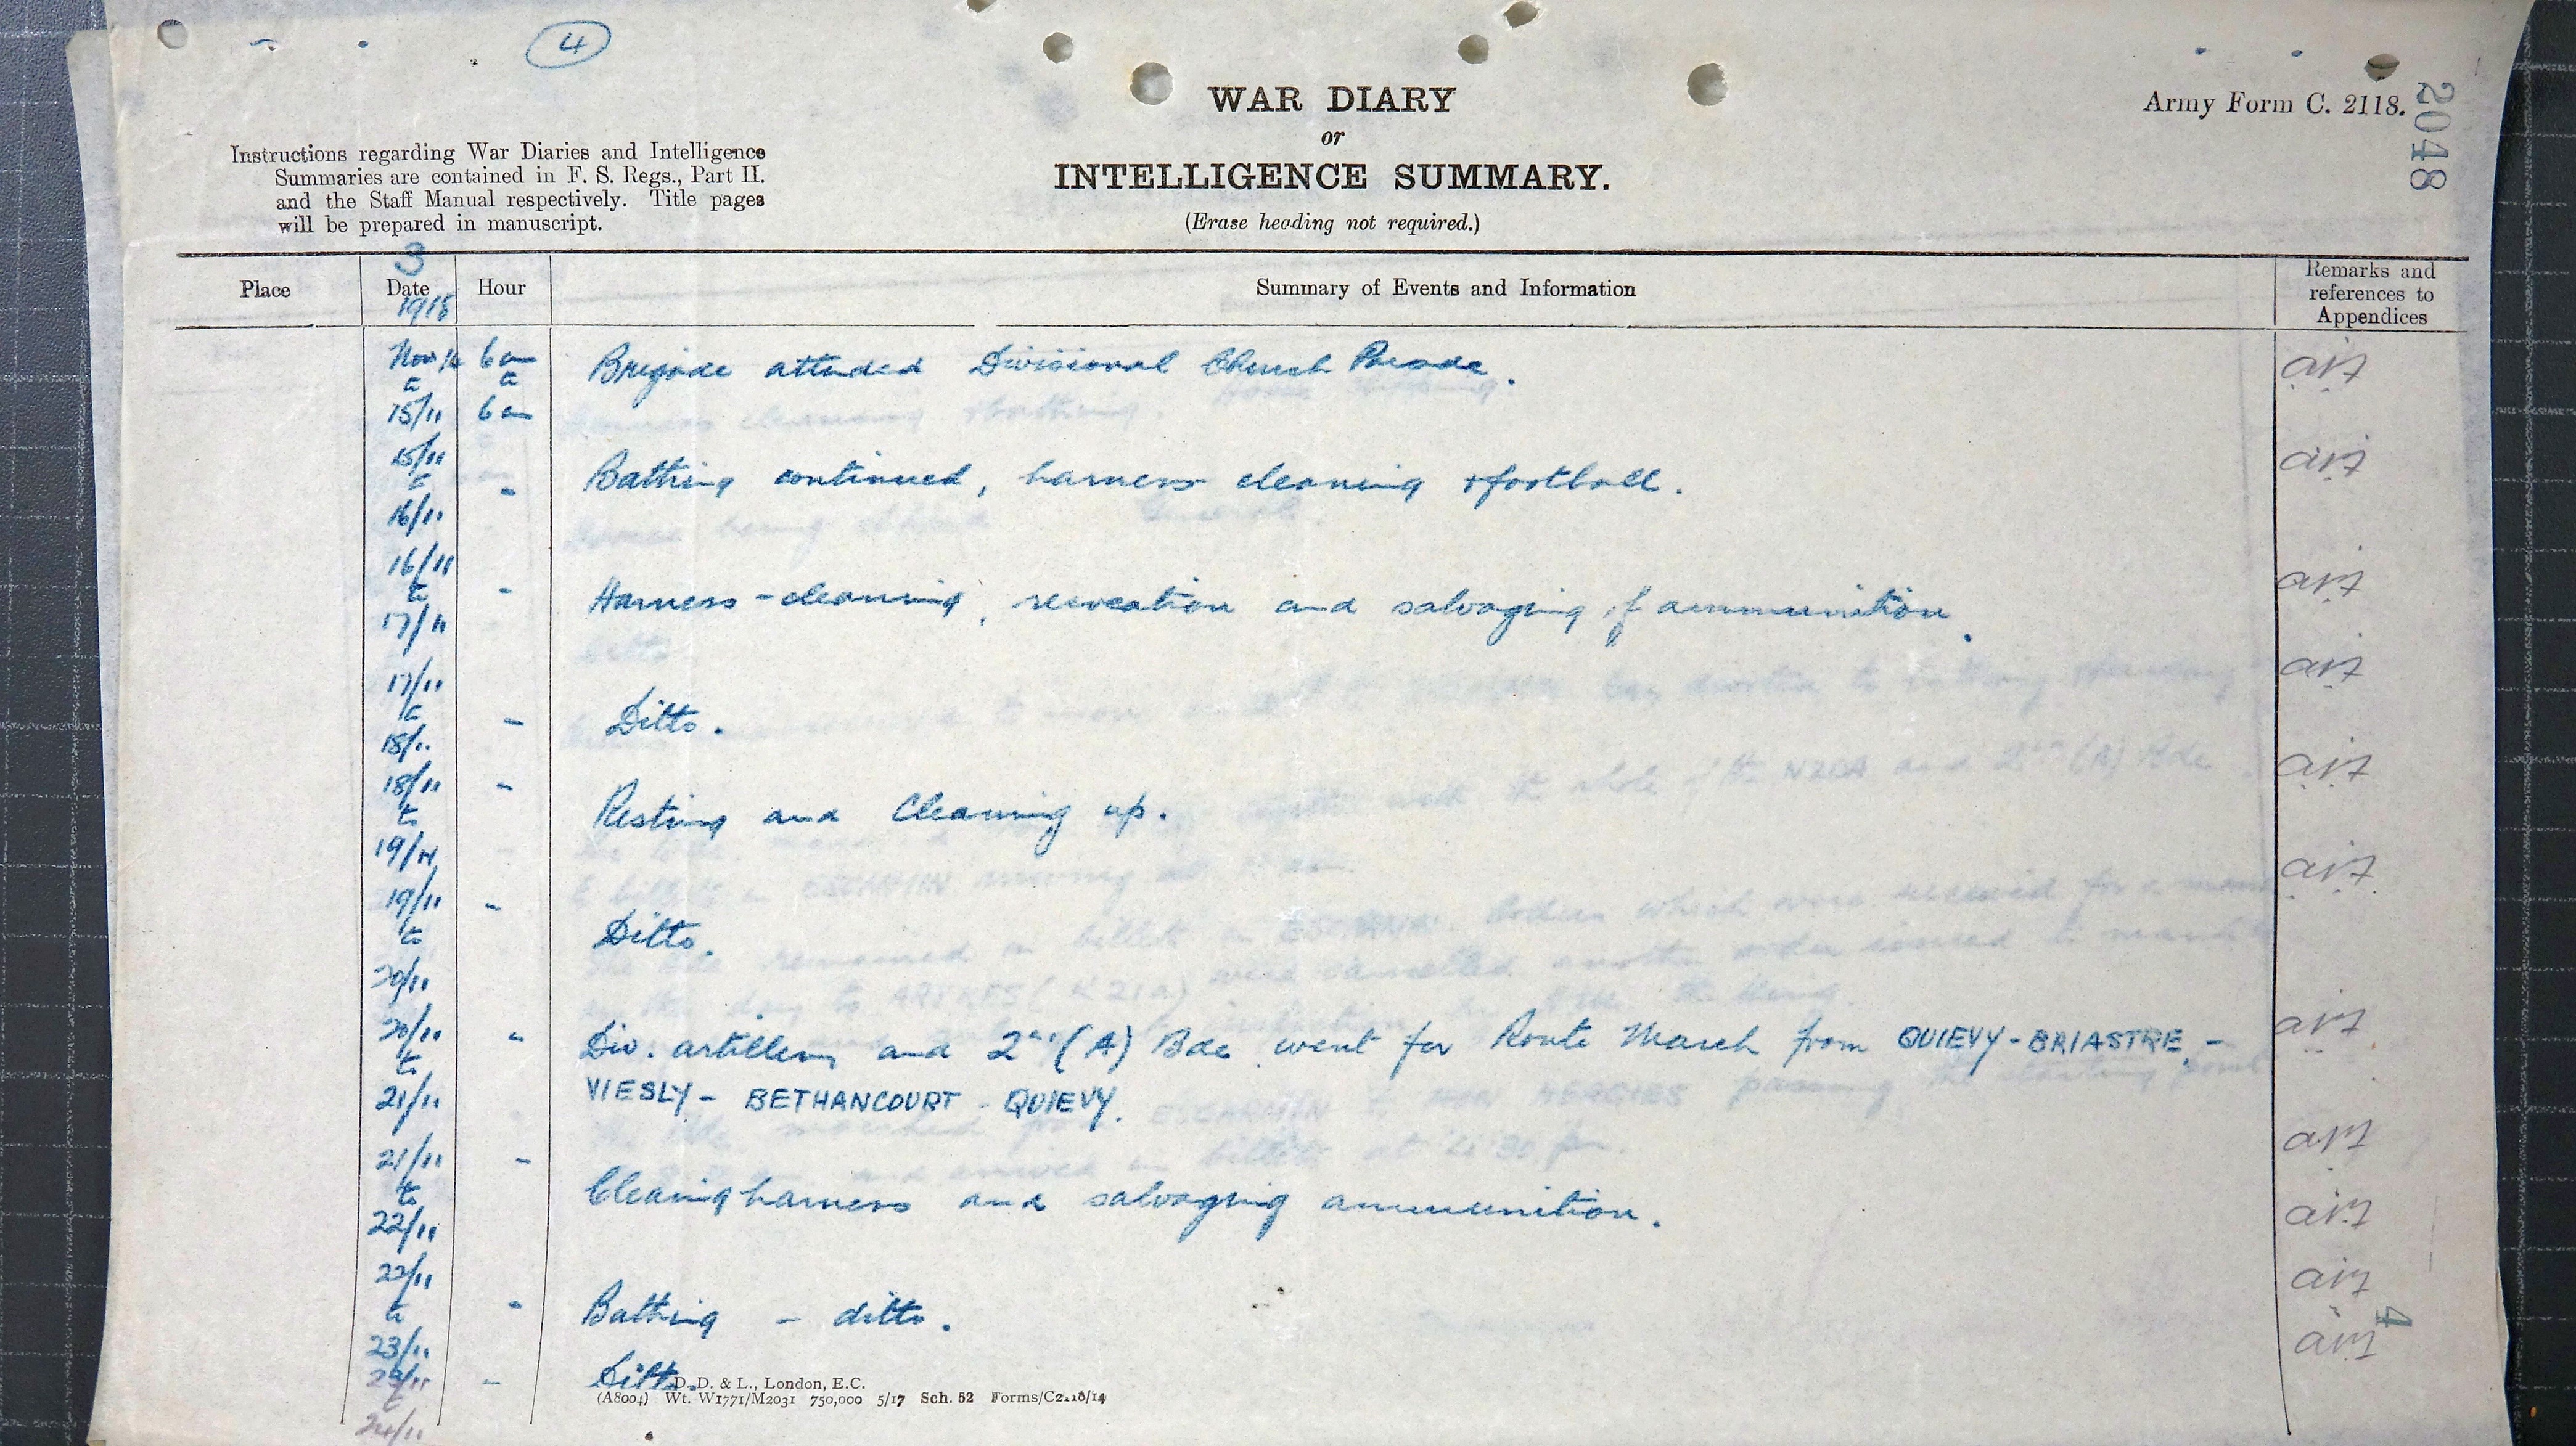 4
WAR DIARY
or
INTELLIGENCE SUMMARY.
(Erase heading not required.)
Army Form C. 2118.
2048
Instructions regarding War Diaries and Intelligence
Summaries are contained in F. S. Regs., Part II.
and the Staff Manual respectively. Title pages
will be prepared in manuscript.
3
Place Date Hour Summary of Events and Information Remarks and references to Appendices
1918
Nov 14 6 am Brigade attended Divisional Church Parade.
to
15/11 6 am
15/11
to " Bathing continued, harness cleaning & football.
16/11
16/11
to " Harness-cleaning, recreation and salvaging of ammunition.
17/11
17/11
to " Ditto.
18/11
18/11 "
to Resting and Cleaning up.
19/11
19/11 "
to Ditto.
20/11
20/11 " Div. artillery and 2nd (A) Bde went for Route March from QUIEVY - BRIASTRE, -
to
21/11 VIESLY - BETHANCOURT - QUIEVY.
21/11 "
to Cleaning harness and salvaging ammunition.
22/11
22/11
to " Bathing - ditto.
23/11
23/11 " Ditto.
to
24/11
4
D. D. & L., London, E.C.
(A8004) Wt. W1771/M2031 750,000 5/17 Sch. 52 Forms/C2118/14